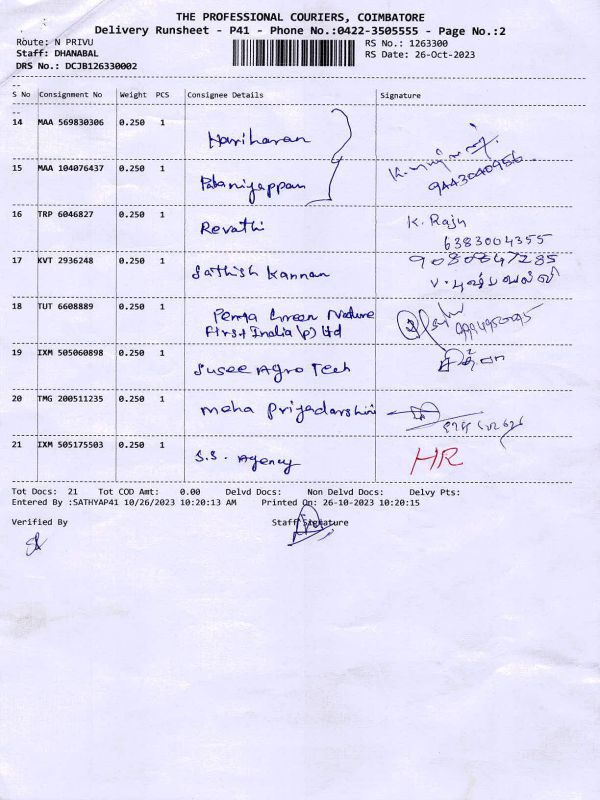 THE PROFESSIONAL COURIERS, COIMBATORE
Delivery Runsheet - P41 - Phone No.:0422-3505555 - Page No.:2
Route: N PRIVU RS No.: 1263300
Staff: DHANABAL RS Date: 26-Oct-2023
DRS No.: DCJB126330002
S No Consignment No Weight PCS Consignee Details Signature
14 MAA 569830306 0.250 1 Hariharan
15 MAA 104076437 0.250 1 Palaniyappan 9443040956
16 TRP 6046827 0.250 1 Revathi K. Raju
6383004355
17 KVT 2936248 0.250 1 Sathish Kannan 9080647285
18 TUT 6608889 0.250 1 Green Nature
First India (P) Ltd
19 IXM 505060898 0.250 1 Susee Agro Tech
20 TMG 200511235 0.250 1 Moha Priyadarshini
21 IXM 505175503 0.250 1 S.S. Agency HR
Tot Docs: 21 Tot COD Amt: 0.00 Delvd Docs: Non Delvd Docs: Delvy Pts:
Entered By :SATHYAP41 10/26/2023 10:20:13 AM Printed On: 26-10-2023 10:20:15
Verified By Staff Signature